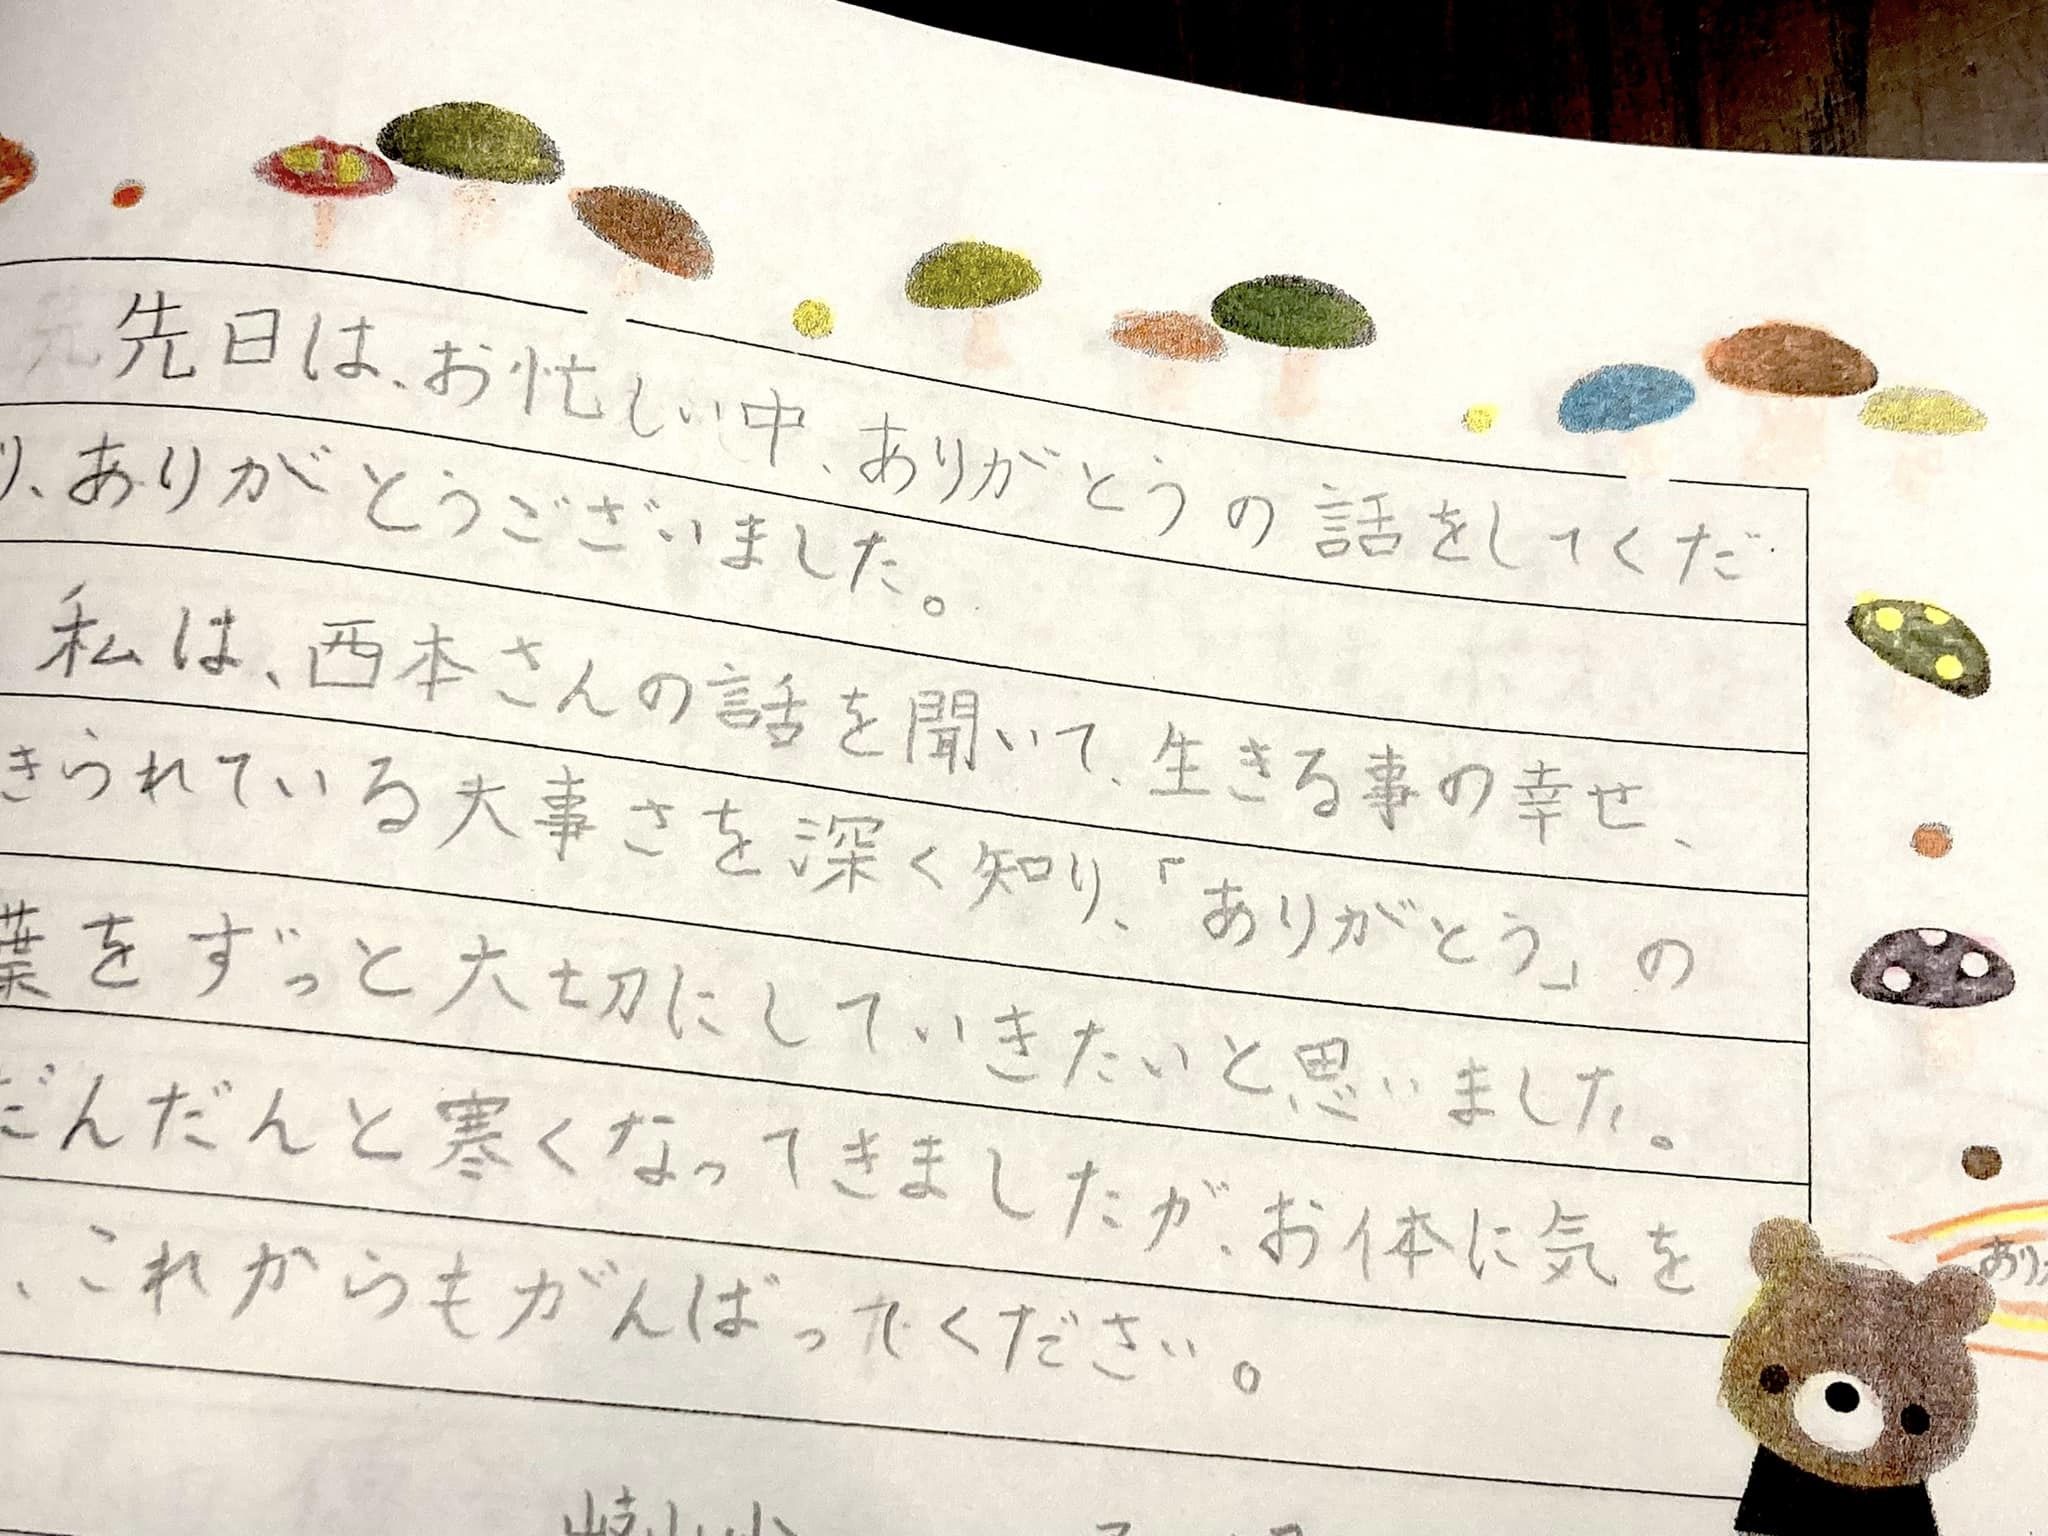 先日は、お忙しい中、ありがとうの話をしてくだ
り、ありがとうございました。
私は、西本さんの話を聞いて、生きる事の幸せ、
きられている大事さを深く知り、「ありがとう」の
葉をずっと大切にしていきたいと思いました。
だんだんと寒くなってきましたが、お体に気を
、これからもがんばってください。
あり